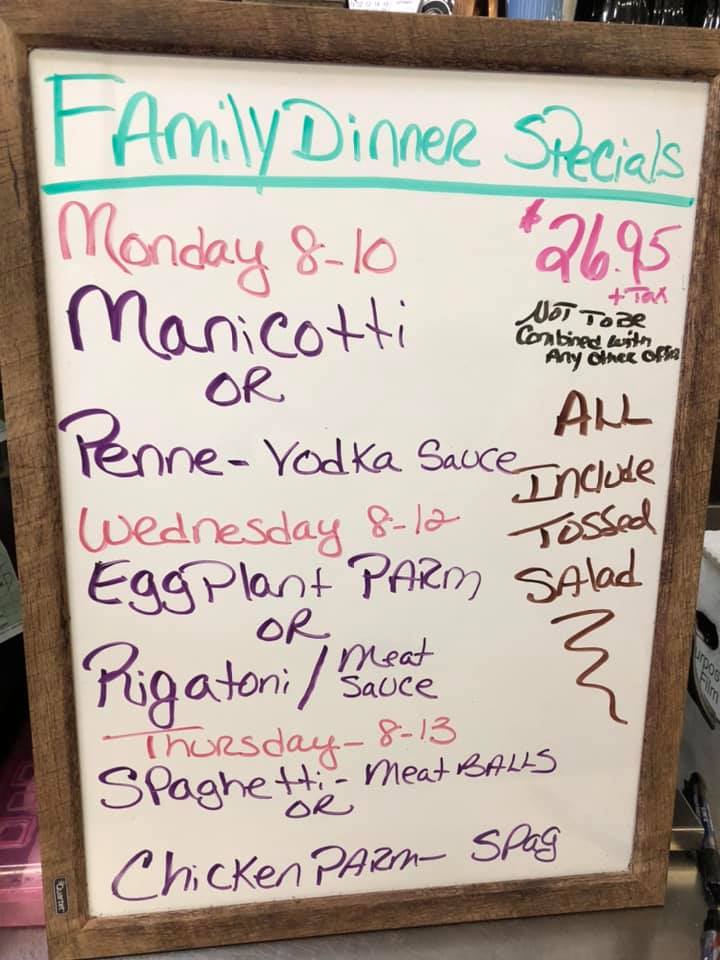 FAmily Dinner Specials
Monday 8-10
$26.95
+ Tax
Manicotti
NOT TO BE
Combined with
Any Other Offer
OR
ALL
Penne- Vodka Sauce
Include
Wednesday 8-12
Tossed
EggPlant PARM
SAlad
OR
Rigatoni / Meat
Sauce
Thursday- 8-13
Spaghetti- Meat BALLS
OR
Chicken PARM- Spag
Quartet